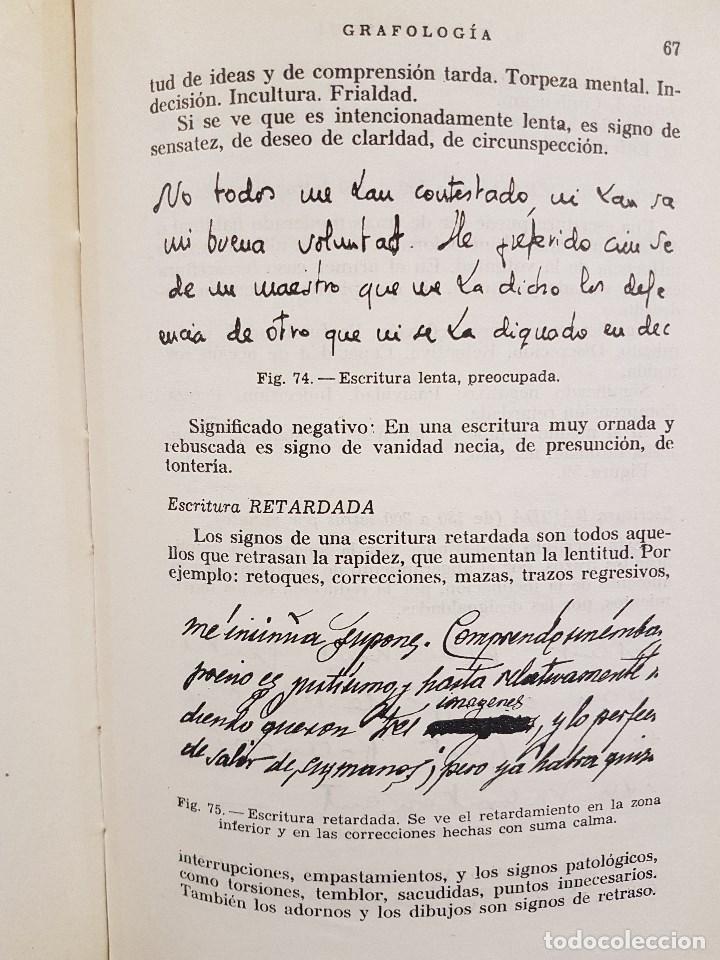 GRAFOLOGÍA
67
tud de ideas y de comprensión tarda. Torpeza mental. In-
decisión. Incultura. Frialdad.
Si se ve que es intencionadamente lenta, es signo de
sensatez, de deseo de claridad, de circunspección.
No todos me han contestado, ni han sa
mi buena voluntad. He preferido cien se
de un maestro que me ha dicho los defe
encia de otro que ni se ha dignado en dec
Fig. 74. — Escritura lenta, preocupada.
Significado negativo: En una escritura muy ornada y
rebuscada es signo de vanidad necia, de presunción, de
tontería.
Escritura RETARDADA
Los signos de una escritura retardada son todos aque-
llos que retrasan la rapidez, que aumentan la lentitud. Por
ejemplo: retoques, correcciones, mazas, trazos regresivos,
me insinúa supone. Comprendo sin emba
es justísimo y hasta relativamente
diendo imagenes y lo perfec
de salir de sus manos; pero ya habra quiz
Fig. 75. — Escritura retardada. Se ve el retardamiento en la zona
inferior y en las correcciones hechas con suma calma.
interrupciones, empastamientos, y los signos patológicos,
como torsiones, temblor, sacudidas, puntos innecesarios.
También los adornos y los dibujos son signos de retraso.
todocoleccion